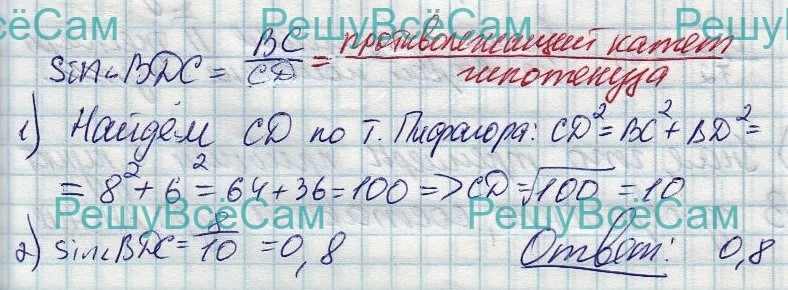 РешуВсёСам РешуВсёСам РешуВсёСам
sin∠BDC = BC/CD = противолежащий катет/гипотенуза
1) Найдём CD по т. Пифагора: CD² = BC² + BD² =
= 8² + 6² = 64 + 36 = 100 => CD = √100 = 10
РешуВсёСам РешуВсёСам
2) sin∠BDC = 8/10 = 0,8 Ответ: 0,8